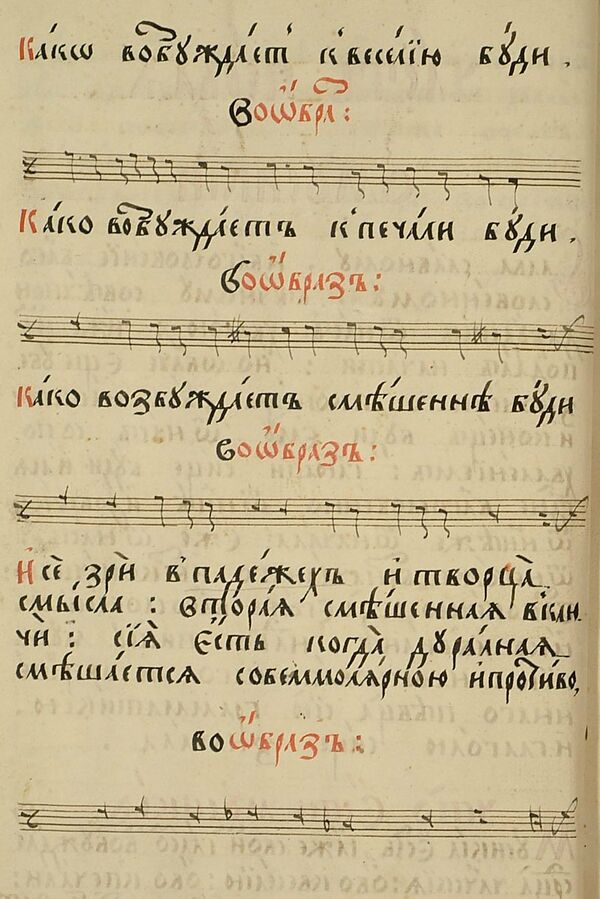 Ка́кѡ возбужда́етъ к̾весе́лїю бу́ди .
Воѡ́бра :
Ка́ко возбужда́етъ к̾печа́ли бу́ди .
Воѡ́бразъ :
Ка́ко возбужда́етъ смѣ́шеннѣ бу́ди
Воѡ́бразъ :
И҆ сѐ, зрѝ в̾паде́жехъ и҆ творца̀
смы́сла : втора́я смѣ́шенная вклю
чѝ : сїѧ̀ є҆́сть когда̀ дура́лная
смѣша́ется собеммолѧ́рною ипроти́во,
воѡ́бразъ :